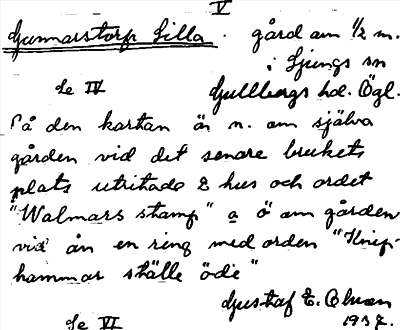 V
Gunnarstorp Lilla. gård am 1/2 m.
i Ljungs sn
Se IV Gullbergs hd. Ögl.
På den kartan är n. am själva
gården vid det senare brukets
plats utritade 2 hus och ordet
"Walmars stamp" a ö am gården
vid ån en ring med orden "Knip-
hammar ställe öde"
Gustaf E. Olman
Se VI 1937.